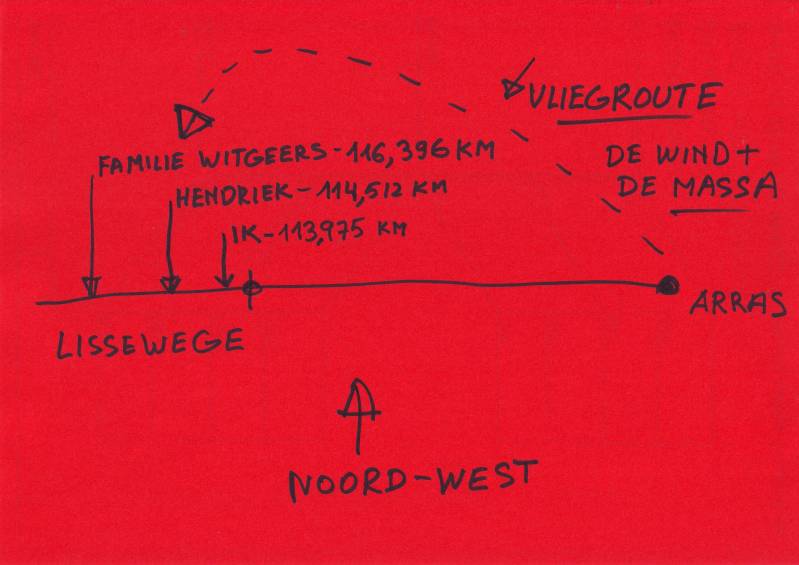 VLIEGROUTE
DE WIND +
DE MASSA
FAMILIE WITGEERS - 116,396 KM
HENDRIEK - 114,512 KM
IK - 113,975 KM
ARRAS
LISSEWEGE
NOORD-WEST